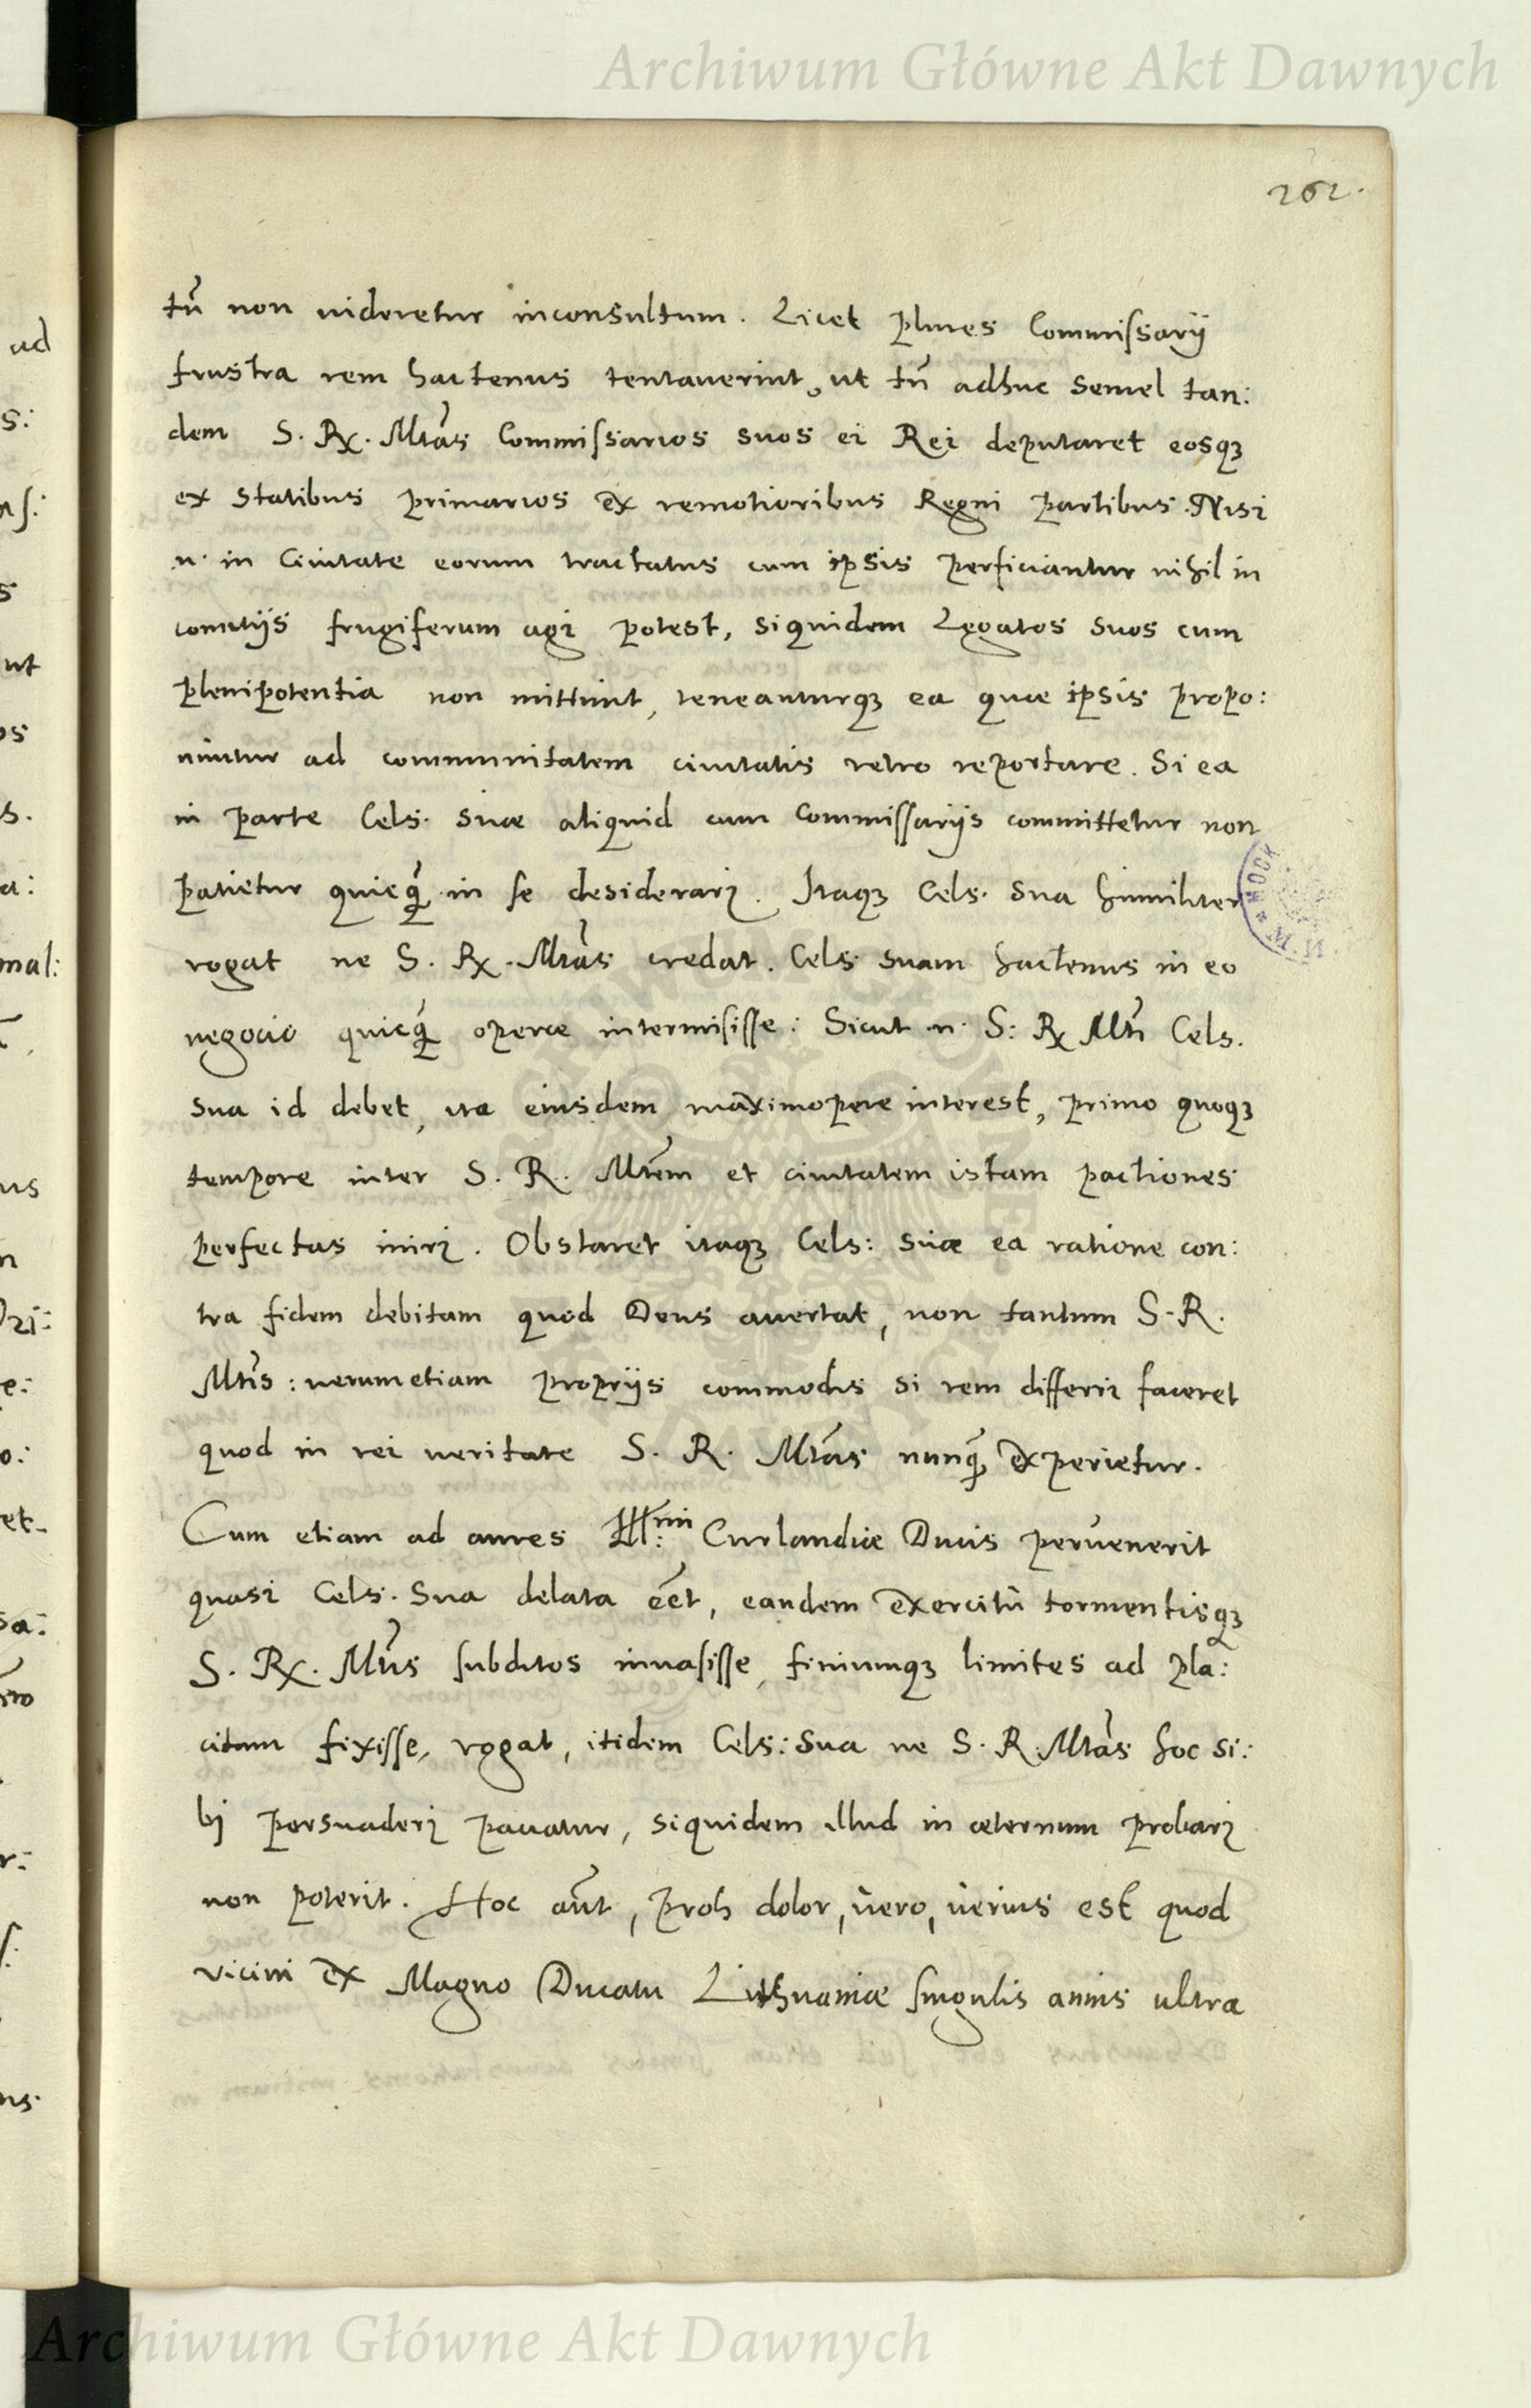 Archiwum Główne Akt Dawnych
262.
tñ non uideretur inconsultum. Licet plures Commissarij
frustra rem hactenus tentauerint, ut tñ adhuc semel tan:
dem S. Rx. Mtas Commissarios suos ei Rei deputaret eosq3
ex statibus primarios ex remotioribus Regni partibus. Nisi
n. in Ciuitate eorum tractatus cum ipsis perficiantur nihil in
comitijs frugiferum agi potest, siquidem Legatos suos cum
plenipotentia non mittunt, teneanturq3 ea quae ipsis propo:
nuntur ad communitatem ciuitatis retro reportare. Si ea
in parte Cels. suae aliquid cum Commissarijs committetur non
patietur quicq̃ in se desiderari. Itaq3 Cels. sua humiliter
rogat ne S. Rx. Mtas credat. Cels suam hactenus in eo
negocio quicq̃ operae intermisisse: Sicut n. S: Rx Mti Cels.
sua id debet, ita eiusdem maximopere interest, primo quoq3
tempore inter S. R. Mtem et ciuitatem istam pactiones
perfectas iniri. Obstaret itaq3 Cels: suae ea ratione con:
tra fidem debitam quod Deus auertat, non tantum S. R.
Mtis: uerumetiam proprijs commodis si rem differri faceret
quod in rei ueritate S. R. Mtas nunq̃ experietur.
Cum etiam ad aures Ill:mi Curlandiae Ducis peruenerit
quasi Cels. Sua delata eet, eandem exercitu tormentisq3
S. Rx. Mtis subditos inuasisse, finiumq3 limites ad pla:
citam fixisse, rogat, itidem Cels: sua ne S. R. Mtas hoc si:
bj persuaderi patiatur, siquidem illud in aeternum probari
non poterit. Hoc aũt, proh dolor, uero, uerius est quod
vicini ex Magno Ducatu Lithuaniae singulis annis ultra
Archiwum Główne Akt Dawnych